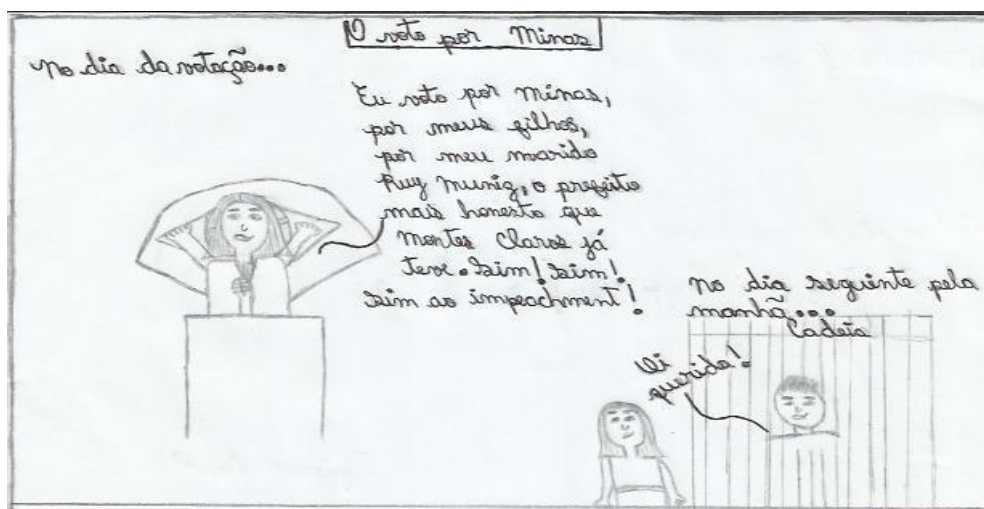 O voto por Minas
No dia da votação...
Eu voto por Minas,
por meus filhos,
por meu marido
Ruy Muniz, o prefeito
mais honesto que
Montes Claros já
teve. Sim! Sim!
Sim ao impeachment!
No dia seguinte pela
manhã...
Cadeia
Oi
querida!